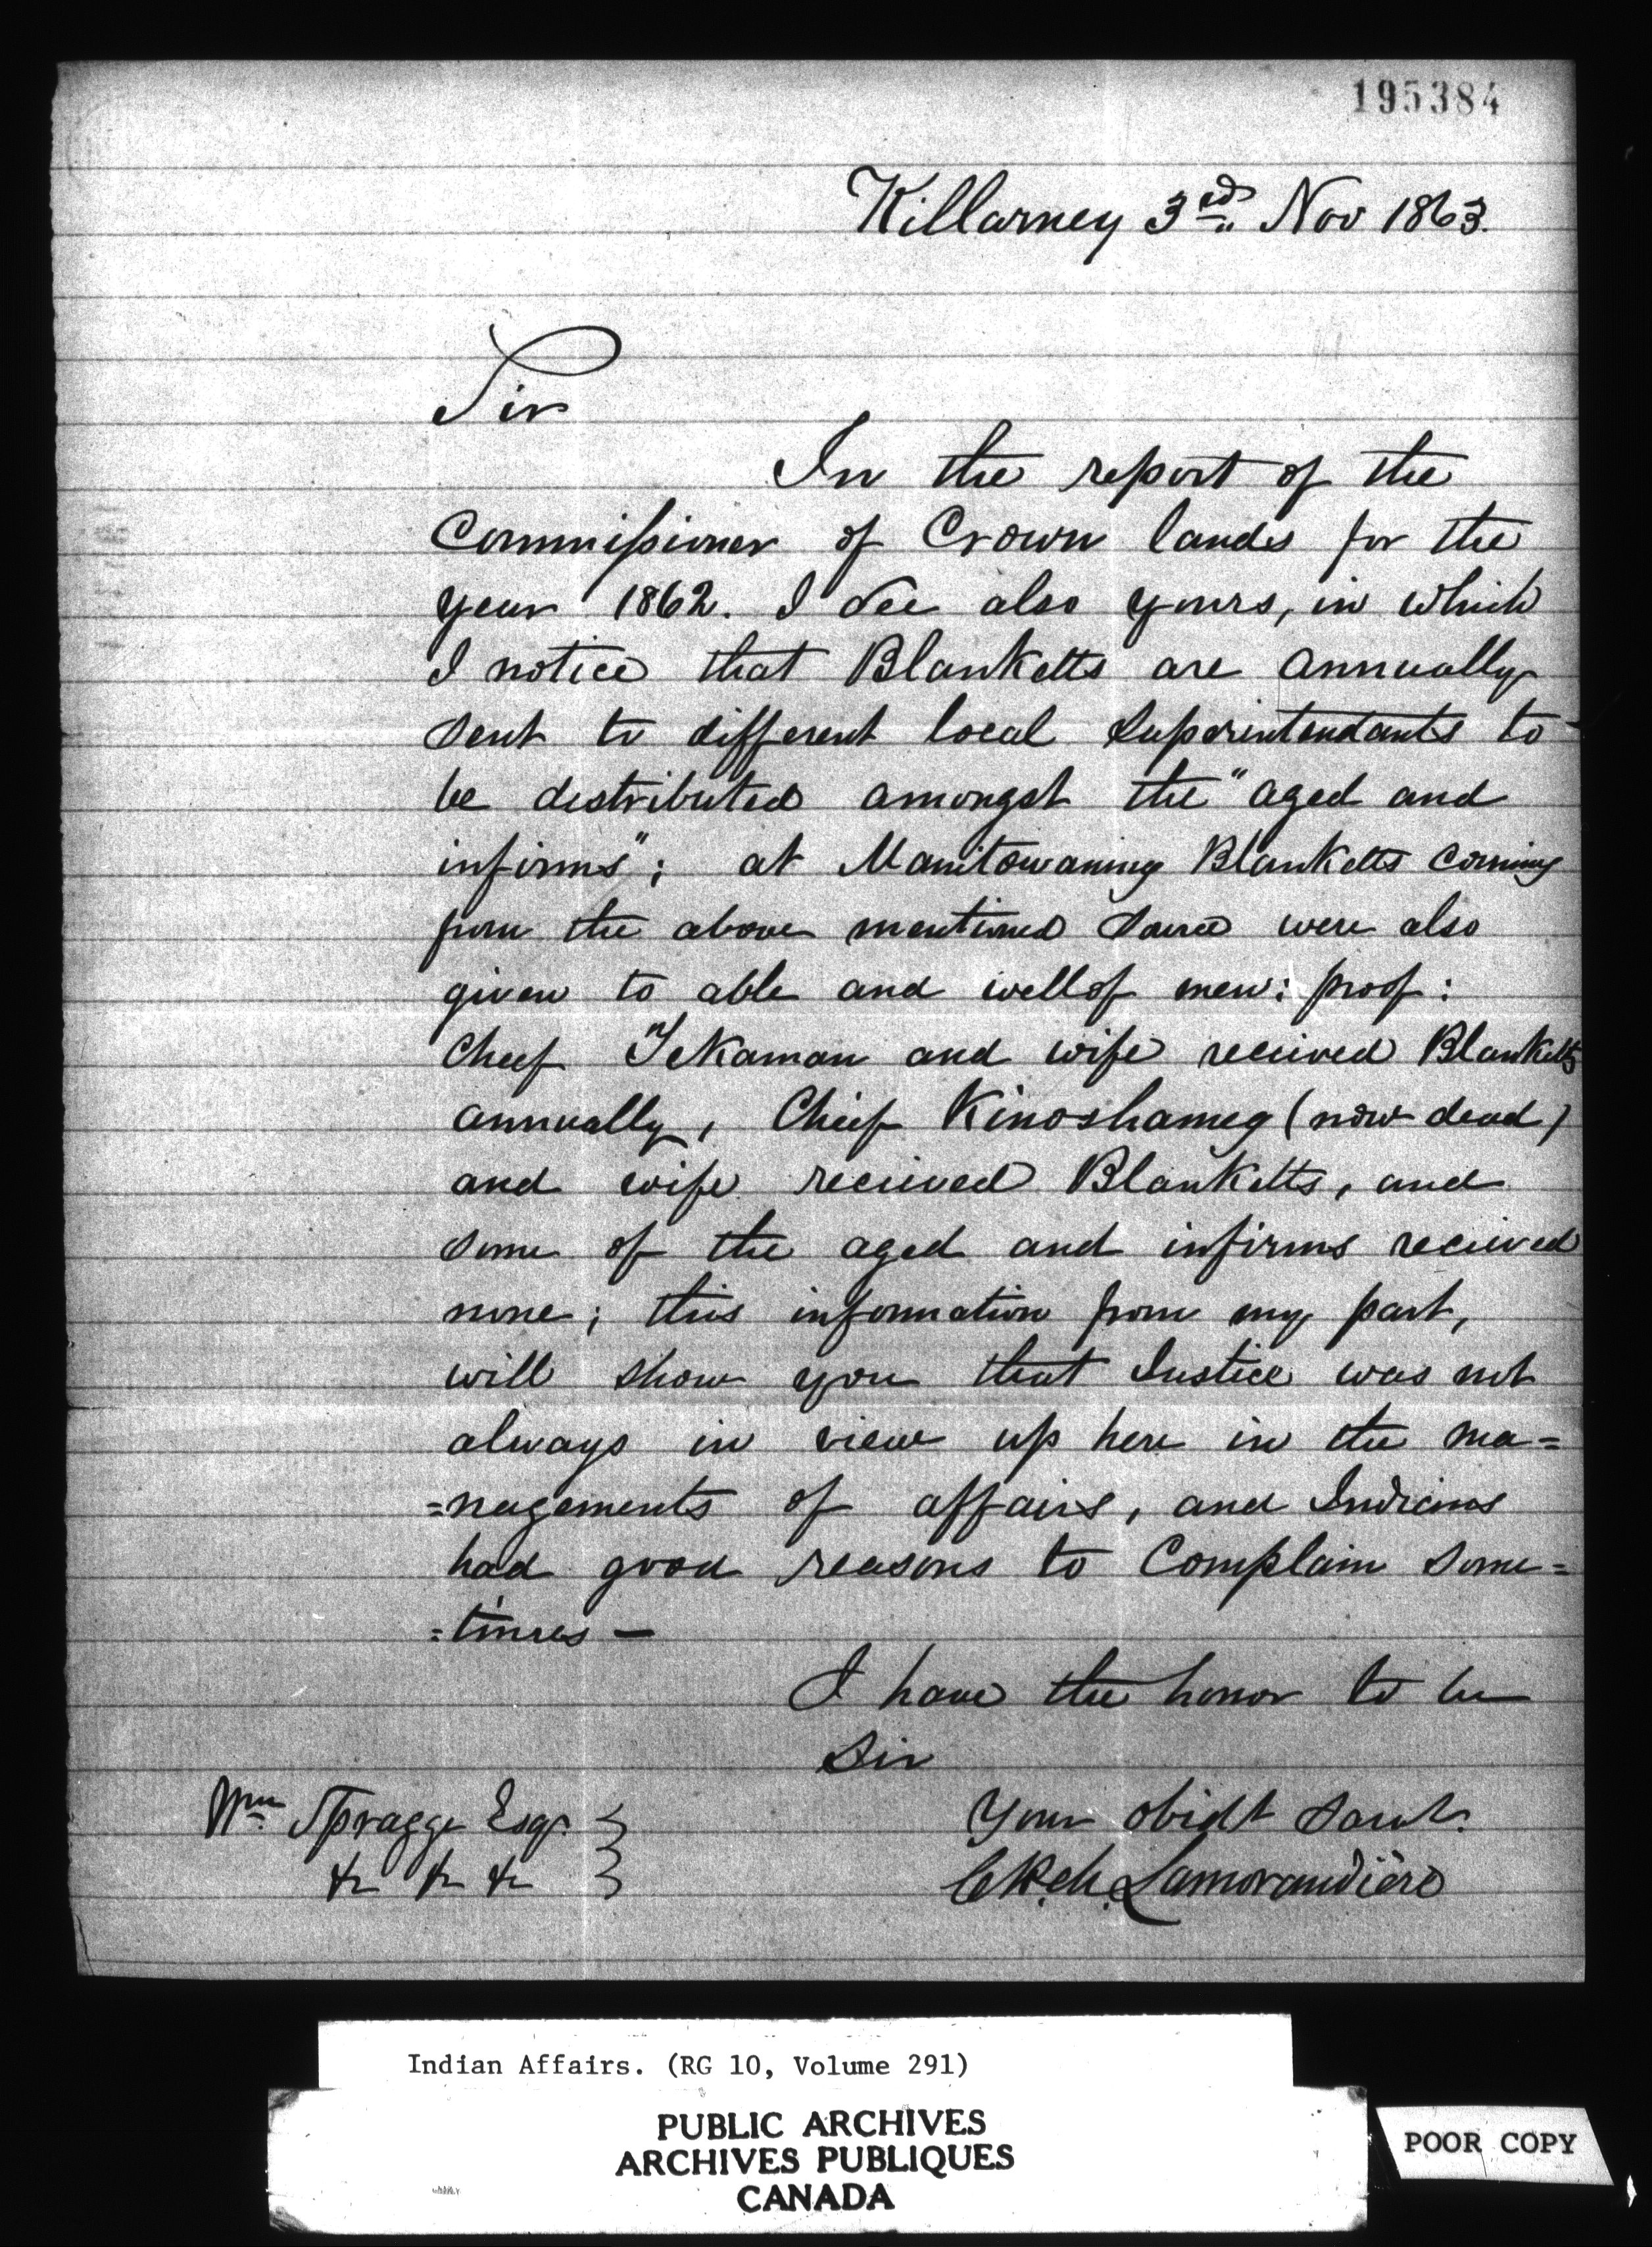 195384
Killarney 3rd Nov 1863.
Sir
In the report of the
Commissioner of Crown lands for the
year 1862. I see also yours, in which
I notice that Blanketts are annually
sent to different local Superintendants to
be distributed amongst the "aged and
infirms"; at Manitowaning Blanketts coming
from the above mentioned source were also
given to able and wellof men: proof:
Cheef Itekaman and wife recieved Blanketts
annually, Chief Kinoshameg (now dead)
and wife recieved Blanketts, and
some of the aged and infirms recieved
none; this information from my part,
will show you that Justice was not
always in view up here in the ma=
=nagements of affairs, and Indians
had good reasons to Complain some=
=times —
I have the honor to be
Sir
Your obidt Servt.
Wm Spragge Esqr.
&c &c &c
Ch. de Lamorandière
Indian Affairs. (RG 10, Volume 291)
PUBLIC ARCHIVES
ARCHIVES PUBLIQUES
CANADA
POOR COPY